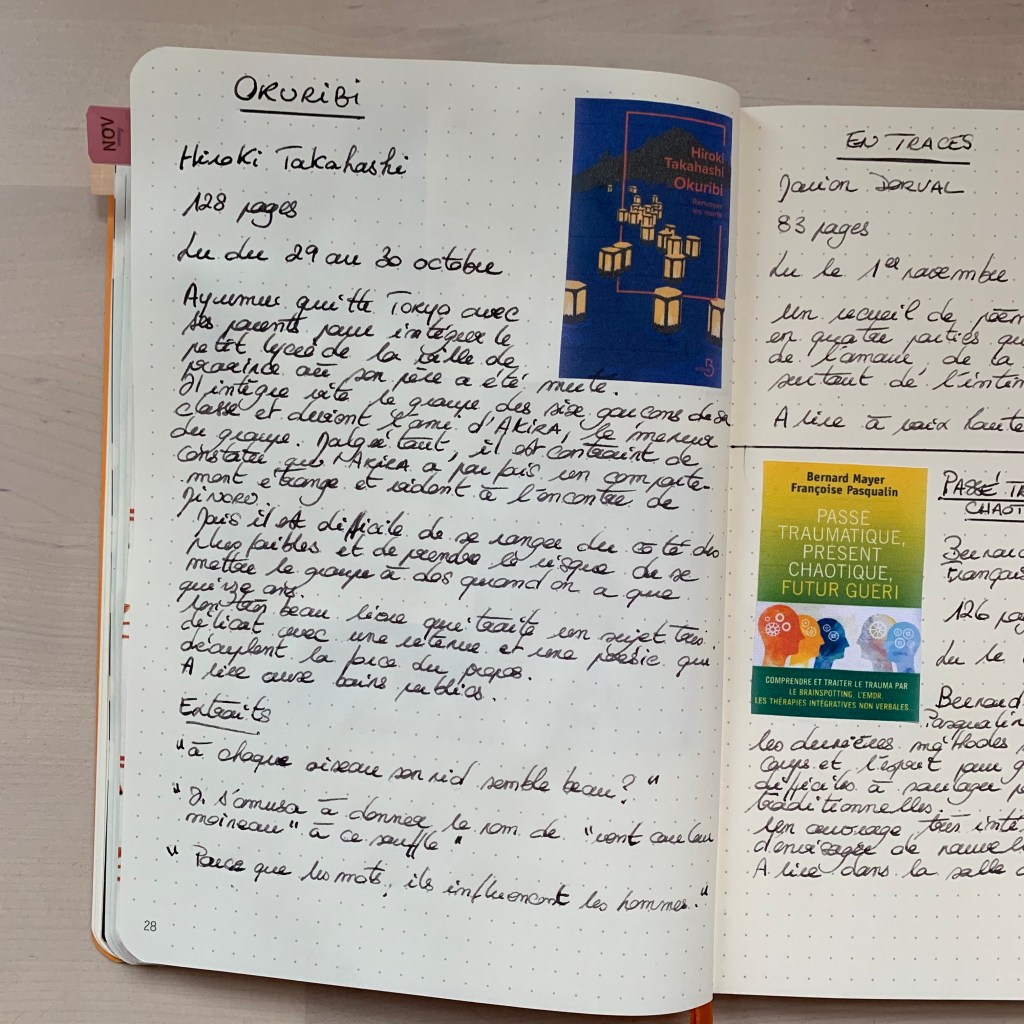 NOV
OKURIBI
Hiroki Takahashi
128 pages
Lu du 29 au 30 octobre
Hiroki
Takahashi
Okuribi
Renvoyer
les morts
B
Ayumu quitte Tokyo avec
ses parents pour intégrer le
petit lycée de la ville de
province où son père a été muté.
Il intègre vite le groupe des six garçons de sa
classe et devient l'ami d'AKiRA, le meneur
du groupe. Malgré tout, il est contraint de
constater que AKiRA a parfois un comporte-
ment étrange et violent à l'encontre de
Minoru.
Mais il est difficile de se ranger du côté des
plus faibles et de prendre le risque de se
mettre le groupe à dos quand on a que
quinze ans.
Un très beau livre qui traite un sujet très
délicat avec une retenue et une poésie qui
décuplent la force du propos.
A lire aux bains publics.
Extraits
"à chaque oiseau son nid semble beau?"
"Il s'amusa à donner le nom de "vent couleur
moineau" à ce souffle"
"Parce que les mots, ils influencent les hommes."
28
EN TRACES
Marion DORVAL
83 pages
Lu le 1er novembre
Un recueil de poèm
en quatre parties qu
de l'amour, de la
surtout de l'intim
A lire à voix haute
Bernard Mayer
Françoise Pasqualin
PASSÉ
TRAUMATIQUE,
PRÉSENT
CHAOTIQUE,
FUTUR GUÉRI
COMPRENDRE ET TRAITER LE TRAUMA PAR
LE BRAINSPOTTING, L'EMDR,
LES THÉRAPIES INTÉGRATIVES NON VERBALES.
PASSÉ TR
CHAOT
Bernar
Françoi
126 pag
Lu le
Bernard
Pasqualin
les dernières méthodes
corps et l'esprit pour g
difficiles à soulager p
traditionnelles.
Un ouvrage très inté
d'envisager de nouvel
A lire dans la salle d